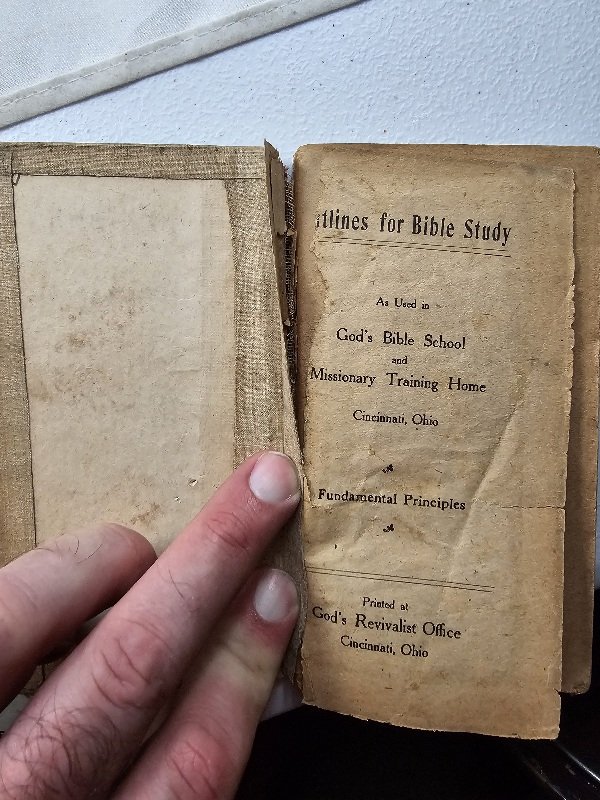 tlines for Bible Study
As Used in
God's Bible School
and
Missionary Training Home
Cincinnati, Ohio
Fundamental Principles
Printed at
God's Revivalist Office
Cincinnati, Ohio